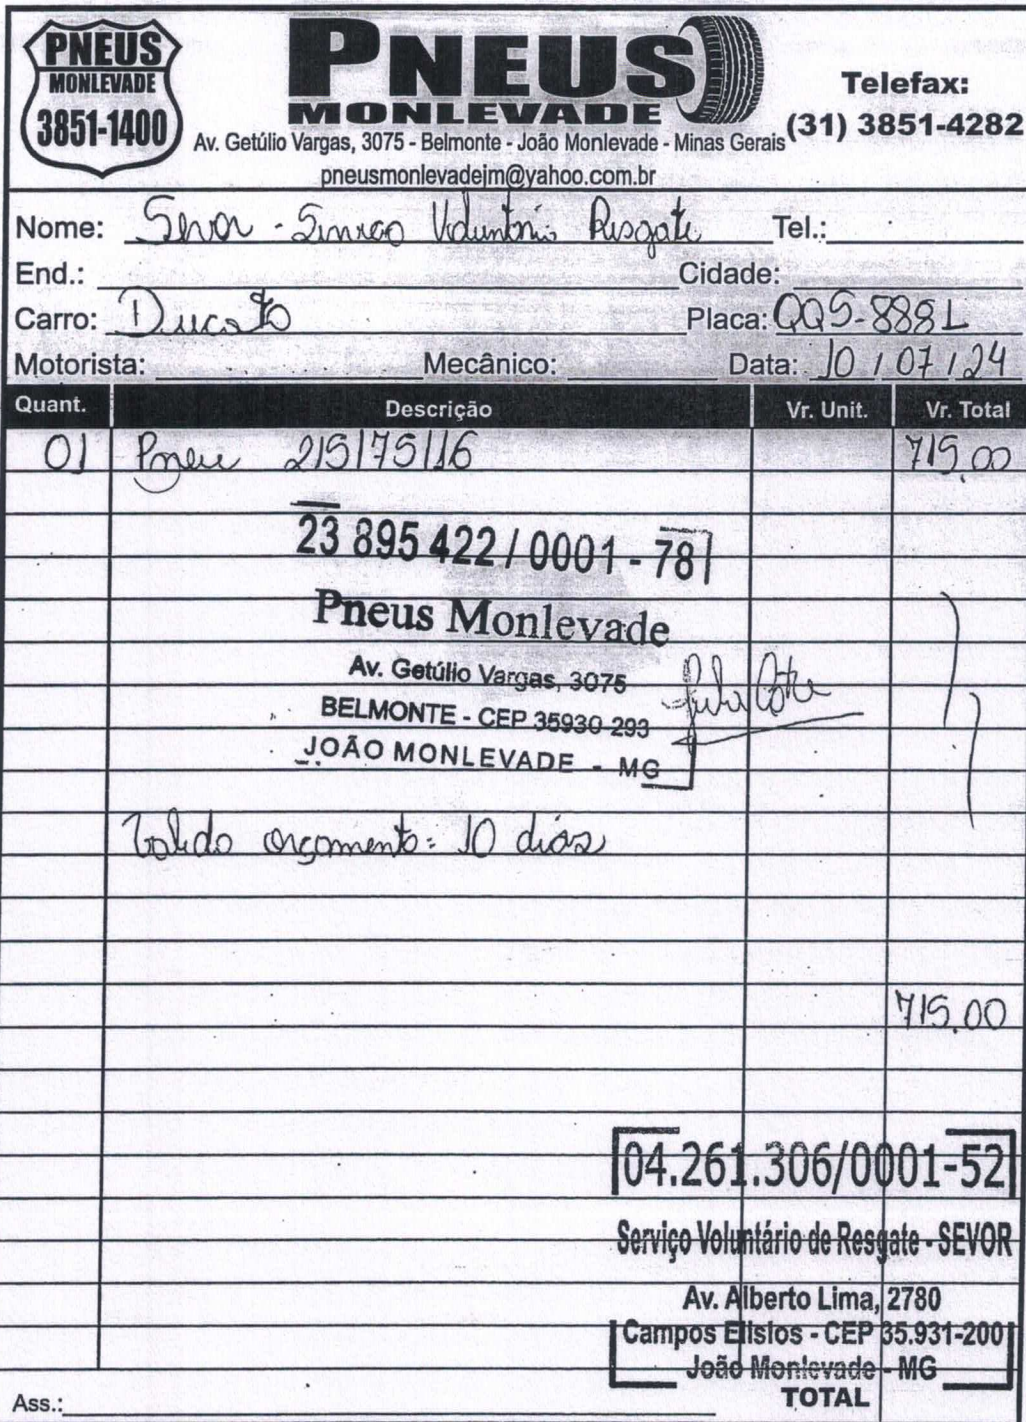 PNEUS
MONLEVADE
3851-1400
PNEUS
MONLEVADE
Av. Getúlio Vargas, 3075 - Belmonte - João Monlevade - Minas Gerais
pneusmonlevadejm@yahoo.com.br
Telefax:
(31) 3851-4282
Nome: Sevor - Serviço Voluntário Resgate Tel.:
End.: Cidade:
Carro: Ducato Placa: QQS-888L
Motorista: Mecânico: Data: 10/07/24
Quant. Descrição Vr. Unit. Vr. Total
01 Pneu 215/75/16 715.00
23 895 422/0001-78
Pneus Monlevade
Av. Getúlio Vargas, 3075
BELMONTE - CEP 35930-293
JOÃO MONLEVADE - MG
Valido orçamento: 10 dias
715.00
04.261.306/0001-52
Serviço Voluntário de Resgate - SEVOR
Av. Alberto Lima, 2780
Campos Elísios - CEP 35.931-200
João Monlevade - MG
TOTAL
Ass.: